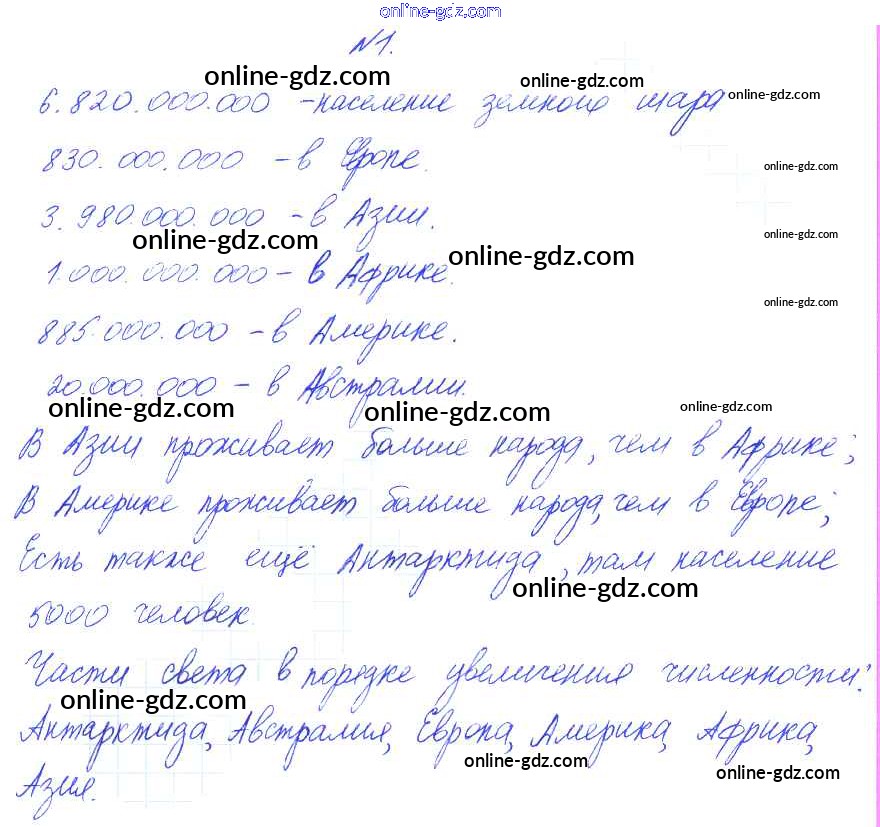 online-gdz.com
№1.
online-gdz.com
online-gdz.com
6.820.000.000 - население земного шара
online-gdz.com
830.000.000 - в Европе.
online-gdz.com
3.980.000.000 - в Азии.
online-gdz.com
online-gdz.com
online-gdz.com
1.000.000.000 - в Африке.
online-gdz.com
885.000.000 - в Америке.
20.000.000 - в Австралии.
online-gdz.com
online-gdz.com
online-gdz.com
В Азии проживает больше народа, чем в Африке;
В Америке проживает больше народа, чем в Европе;
Есть также ещё Антарктида, там население
online-gdz.com
5000 человек.
Части света в порядке увеличения численности:
online-gdz.com
Антарктида, Австралия, Европа, Америка, Африка,
online-gdz.com
online-gdz.com
Азия.